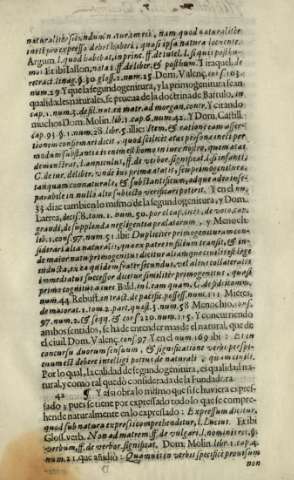 naturaliter secundum naturam rei, nam quod naturaliter
inest pro expresso debet haberi, quasi ipsa natura loquente.
Argum. l. quod habebat, in princ. ff. de
mo. Et ibi Iason, nota 2. ff. de liber. & posthum. Tiraquel, de
retract. linag. §. 30 glos. 2. num. 25. Dom. Valenç. conf. 103.
num. 29 Y que la segundogenitura, y la primogenitura sean
qualidades naturales, se prueba de la doctrina de Bartulo, in
cap. 1. num. 3. de fil. nat. ex matr. ad morgan. contr. Y citando
muchos Dom. Molin. lib. 1. cap. 6. num. 42. Y Dom. Castill.
cap. 93. §. 1. num. 28. lib. 5. illic: Item, & rationem causa
tionem confirmari dicit, quod scilicet aetas personae inest per
modum substantiae is enim est homo minore nostro, quem aetas
demonstrat, l. anniculus, ff. de verbor. significat. l. si infanti,
C. de iur. deliber. unde ius primae aetatis, seu primogenitura,
tanquam connaturale, & substantificum, adeque inde
parabile in nullo alio subiecto verificari poterit. Y en el num.
33. dize tambien lo mismo de la segundogenitura, y Dom.
Larrea, decis. 8. tom. 1. num. 50. por el cap. inter, de
grandi, de supplenda negligentia praelatorum, y Menoch.
lib. 1. conf. 97. num. 51. ibi: Dupliciter primogenitura con-
siderari alia naturalis, quae a patre in filium transit, & in-
de maior natu primogenitus dicitur alia
inducta, ex ea quidem frater secundus, vel alius collateralis
immediatus successor dicitur similiter primogenitus, quasi
primo genitus a iure Bald. in l. cum quam, C. de
num. 44. Rebuff. in tract. de pacific. posses. num. 111. Mieres,
de maiorat. 2. tom. 2. part. quaest. 3. num. 58 Menochio conf.
97. num. 2. & seqq. & conf. 229. num. 115. Y concurriendo
ambos sentidos, se ha de entender mas de el natural, que de
el civil. Dom. Valenç. conf. 97. Y en el num. 169. ibi: Et in
concursu duorum sensuum, & significatione verbi per
nium esset debere intelligi potius de naturali, quam civili.
Por lo qual, la calidad de segundogenitura, es qualidad na-
tural, y como tal quedò considerada de la Fundadora.
42 ¶ Y assi obra lo mismo que si se huviera expres-
sado; pues se tiene por expressado todo lo que se compre-
hende naturalmente en lo expressado: Expressum dicitur,
quod sub natura expressi comprehenditur, l. Lucius. Et ibi
Glos. verb. Non ad matrem. ff. de vulgari, l. nominis 6. §.
verbum, ff. de verbor. significat. Dom. Molin. libr. 1. cap. 4.
num. 21. que añadiò: Quamvis in verbis specificè provisum
non